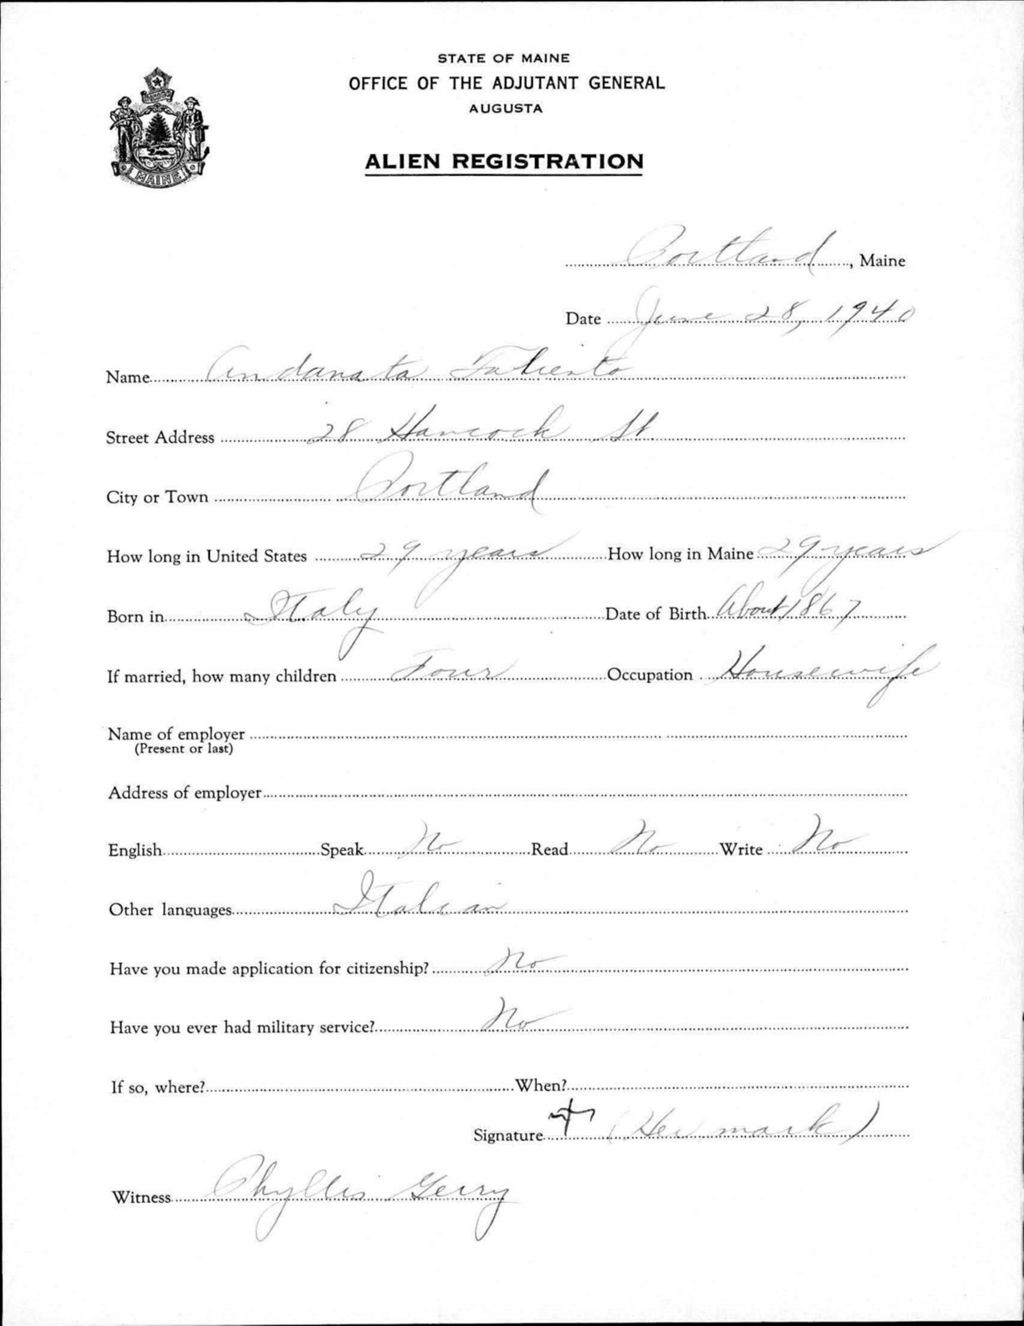 STATE OF MAINE
OFFICE OF THE ADJUTANT GENERAL
AUGUSTA
ALIEN REGISTRATION
MAINE
Portland, Maine
Date June 28, 1940
Name Andanata Taliento
Street Address 28 Hancock St
City or Town Portland
How long in United States 29 years How long in Maine 29 years
Born in Italy Date of Birth About 1867
If married, how many children Four Occupation Housewife
Name of employer
(Present or last)
Address of employer
English Speak No Read No Write No
Other languages Italian
Have you made application for citizenship? No
Have you ever had military service? No
If so, where? When?
Signature (Her mark)
Witness Phyllis Gerry